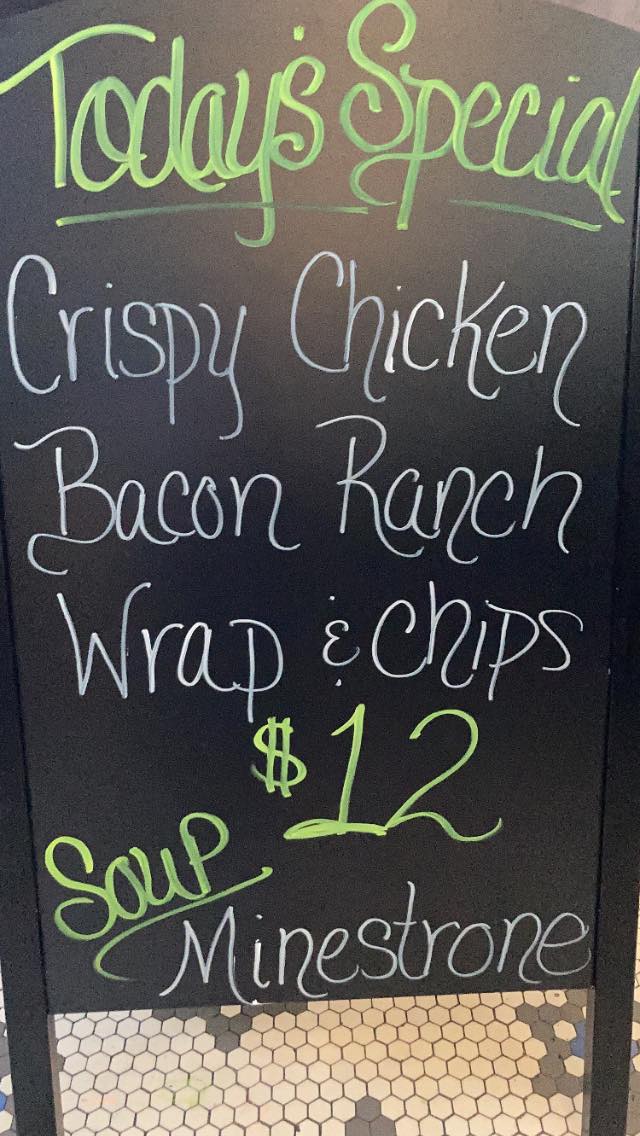 Today's Special
Crispy Chicken
Bacon Ranch
Wrap & Chips
$12
Soup
Minestrone